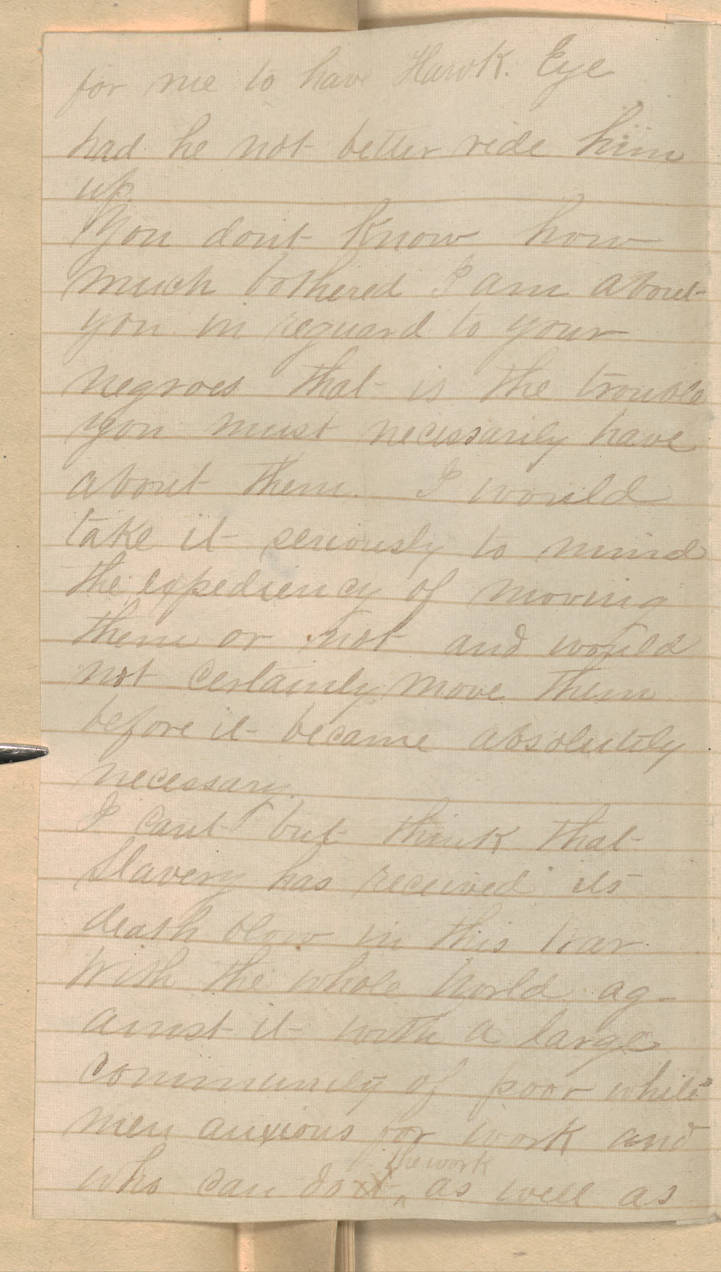 for me to have Hawk. Eye
had he not better ride him
up
You dont know how
much bothered I am about
you in reguard to your
negroes that is the trouble
you must necessarily have
about them. I would
take it seriously to mind
the expediency of moving
them or not and would
not certainly move them
before it became absolutely
necessary.
I cant but think that
Slavery has received its
death blow in this War
With the whole World ag-
ainst it with a large
community of poor white
men anxious for work and
the work
who can do it as well as